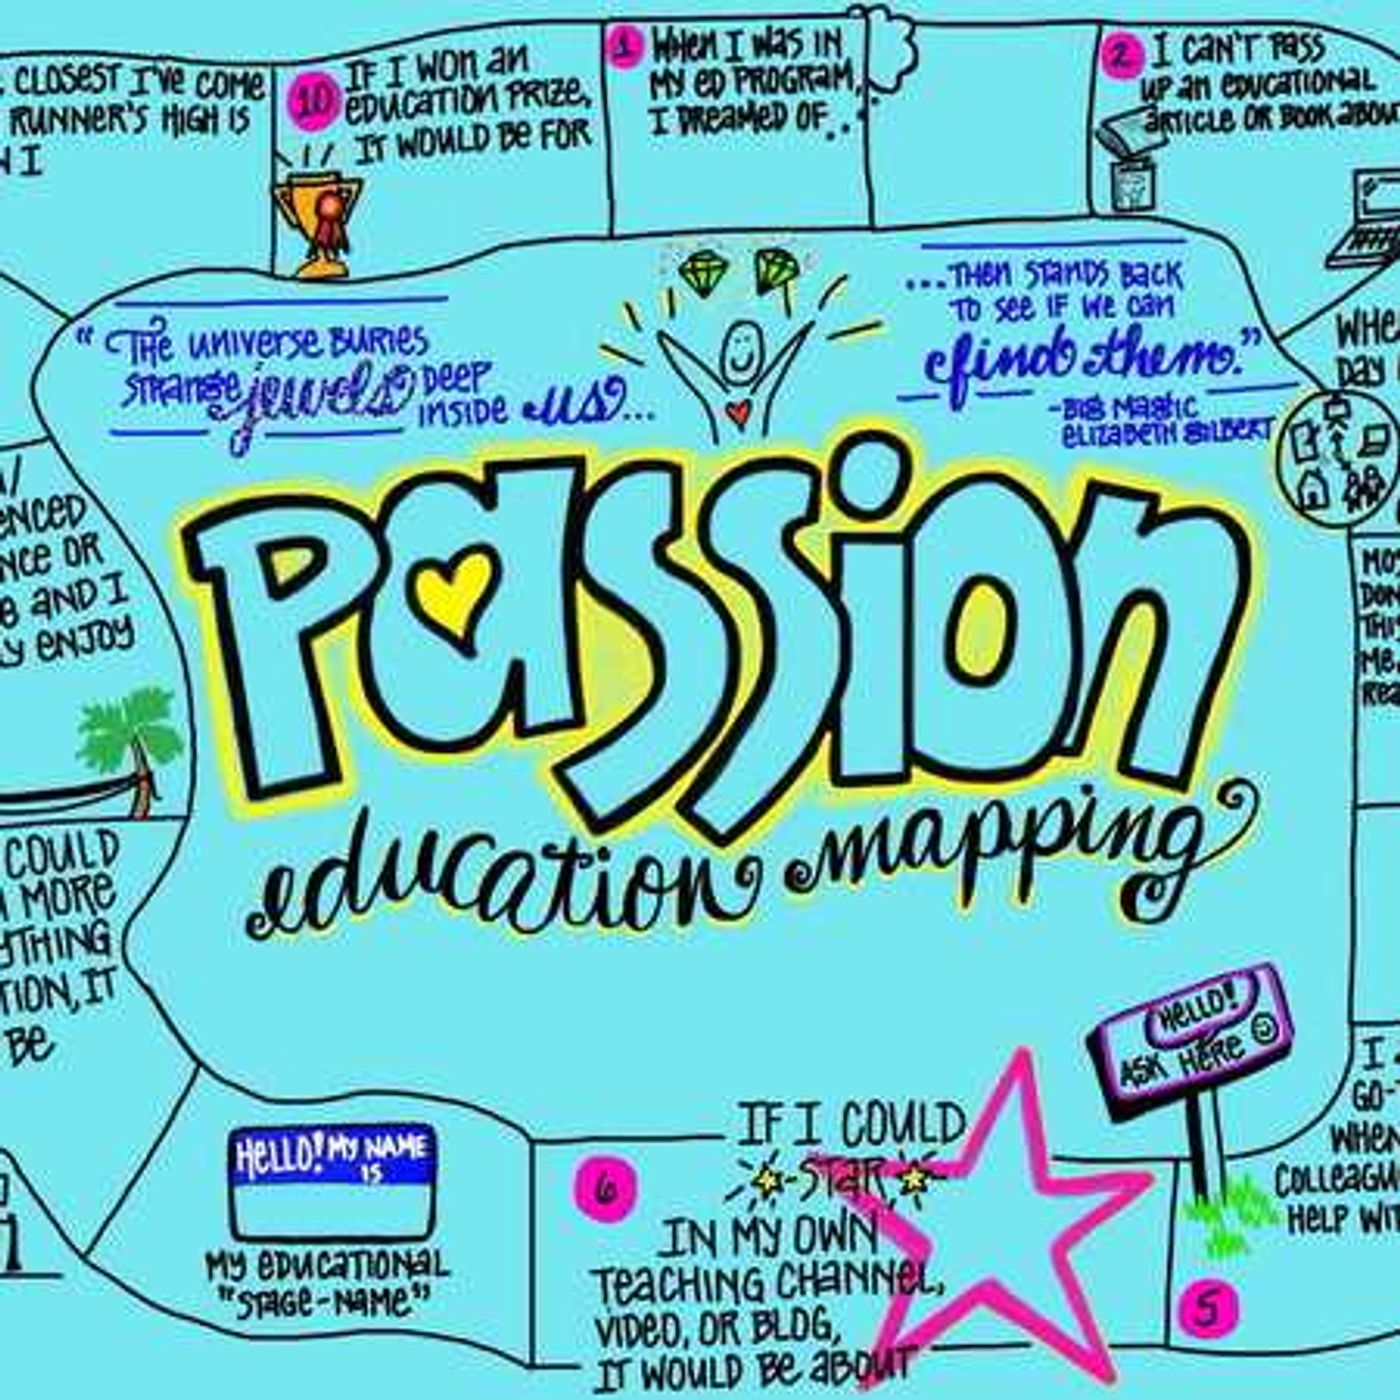 CLOSEST I'VE COME
RUNNER'S HIGH IS
I
10
IF I WON AN
EDUCATION PRIZE,
IT WOULD BE FOR
1
WHEN I WAS IN
MY ED PROGRAM,
I DREAMED OF...
2
I CAN'T PASS
UP AN EDUCATIONAL
ARTICLE OR BOOK ABOU
"THE UNIVERSE BURIES
STRANGE jewels DEEP
INSIDE us...
...THEN STANDS BACK
TO SEE IF WE CAN
find them."
-BIG MAGIC
ELIZABETH GILBERT
WHE
DAY
ENCED
NCE OR
AND I
Y ENJOY
MO
DON
THI
ME
REA
PASSION
education mapping
COULD
MORE
YTHING
TION, IT
BE
HELLO!
ASK HERE
I
GO-
WHEN
COLLEAGU
HELP WIT
5
HELLO! MY NAME
IS
MY EDUCATIONAL
"STAGE-NAME"
6
IF I COULD
-STAR-
IN MY OWN
TEACHING CHANNEL,
VIDEO, OR BLOG,
IT WOULD BE ABOUT